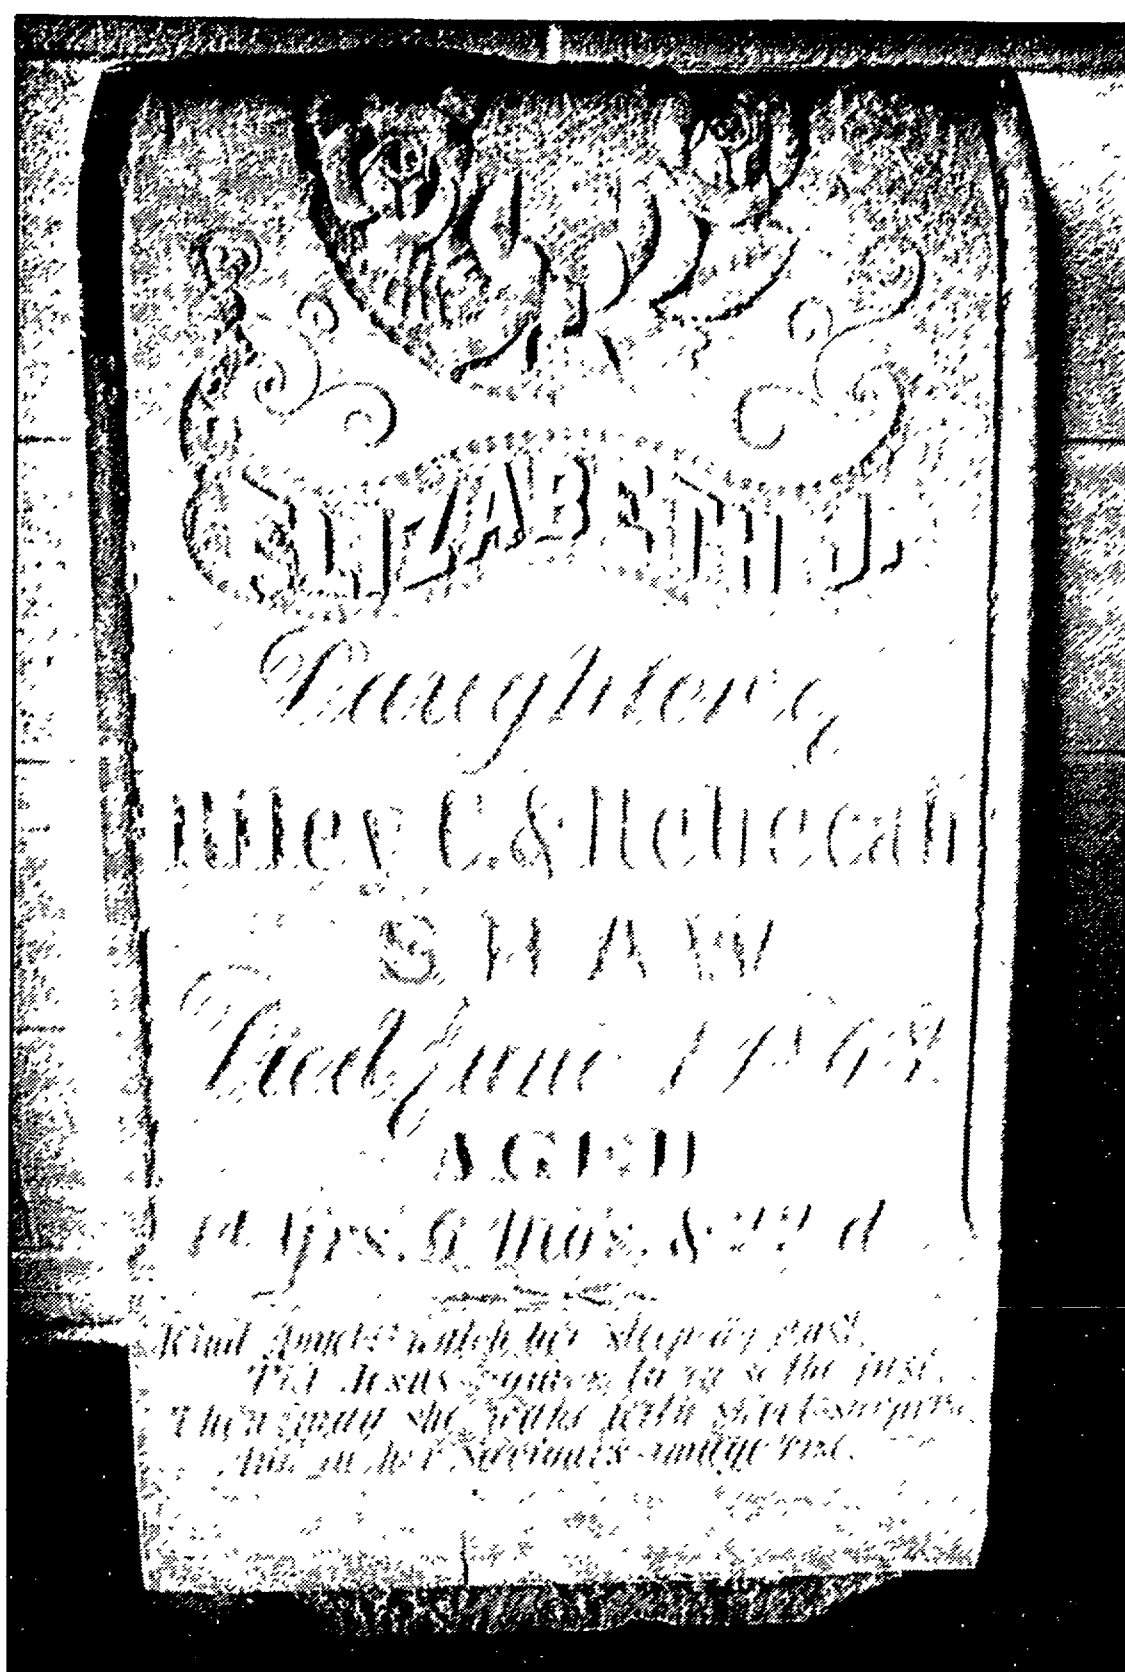 ELIZABETH J.
Daughter of
Riley C. & Rebecah
SHAW
Died June 1 1868
AGED
14 Yrs. 6 Mo's. & 22 d
Kind Angels watch her sleeping dust,
Till Jesus comes to raise the just.
Then may she wake with sweet surprise,
And in her Saviour's image rise.